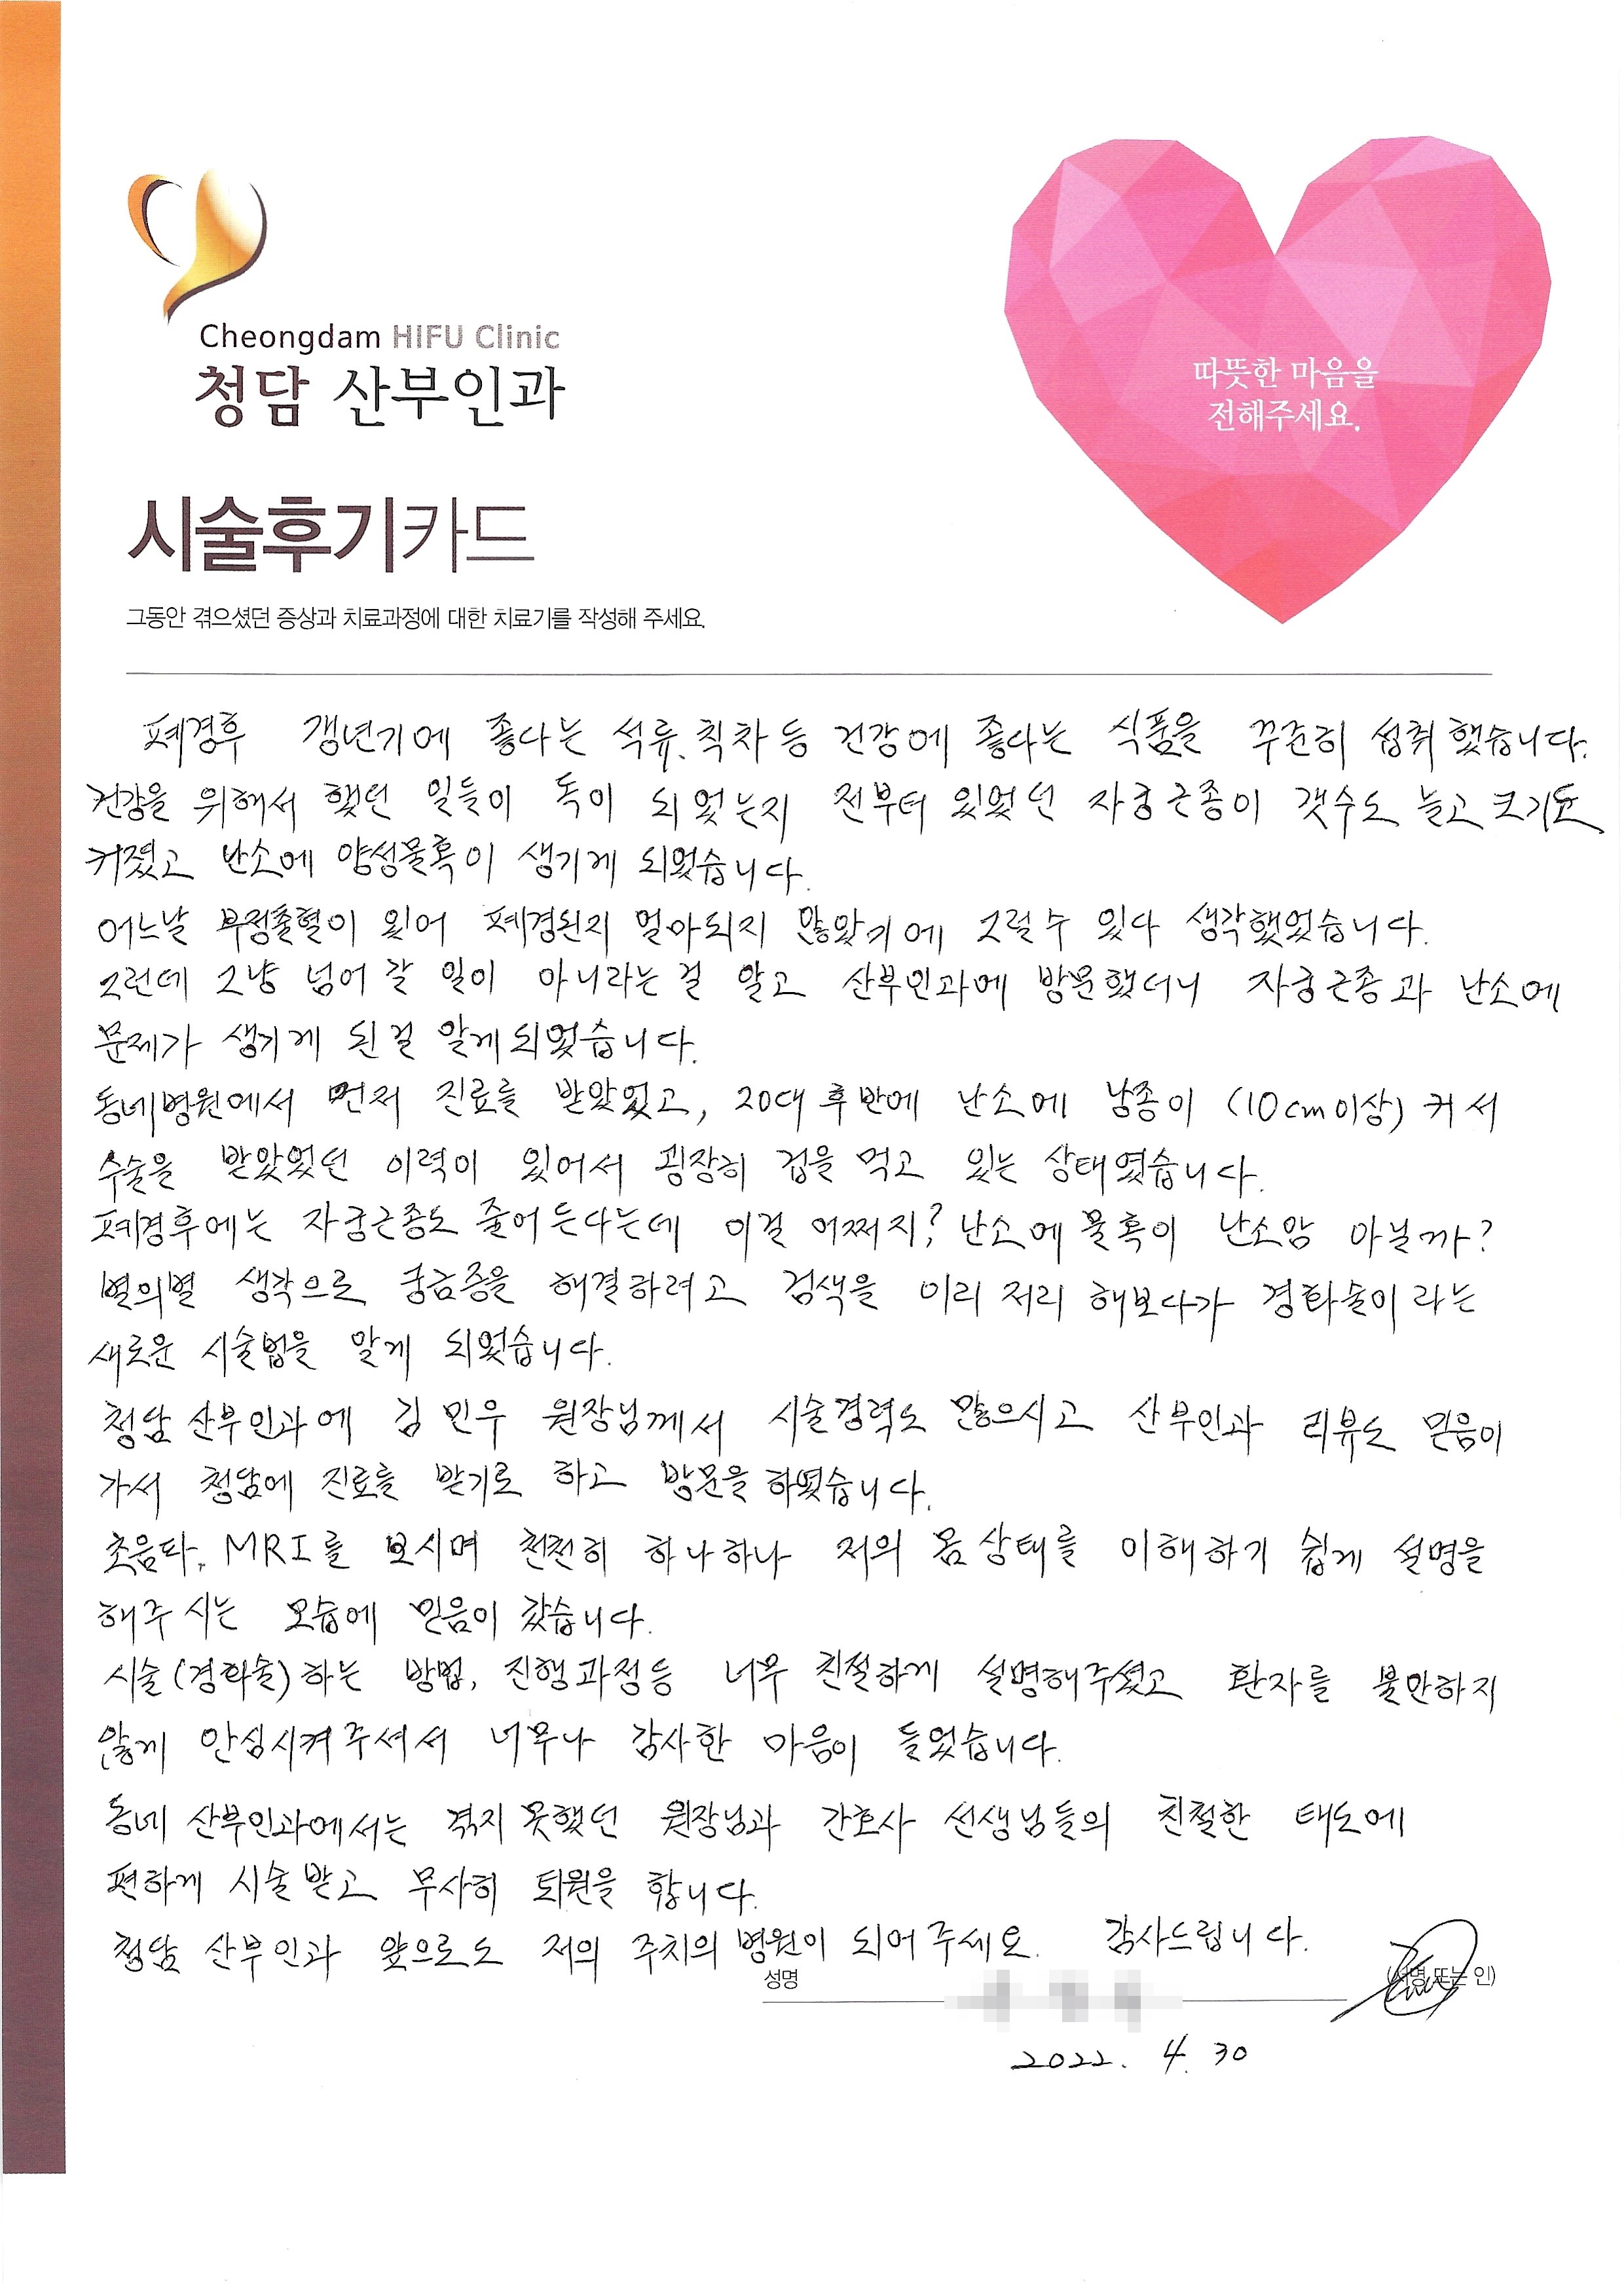 Cheongdam HIFU Clinic
청담 산부인과
따뜻한 마음을
전해주세요.
시술후기카드
그동안 겪으셨던 증상과 치료과정에 대한 치료기를 작성해 주세요.
폐경후 갱년기에 좋다는 석류, 칡차 등 건강에 좋다는 식품을 꾸준히 섭취했습니다.
건강을 위해서 했던 일들이 독이 되었는지 전부터 있었던 자궁근종이 갯수도 늘고 크기도
커졌고 난소에 양성물혹이 생기게 되었습니다.
어느날 부정출혈이 있어 폐경된지 얼아되지 않았기에 그럴수 있다 생각했었습니다.
그런데 그냥 넘어 갈 일이 아니라는 걸 알고 산부인과에 방문했더니 자궁근종과 난소에
문제가 생기게 된걸 알게되었습니다.
동네병원에서 먼저 진료를 받았었고, 20대 후반에 난소에 낭종이 (10cm이상) 커서
수술을 받았었던 이력이 있어서 굉장히 겁을 먹고 있는 상태였습니다.
폐경후에는 자궁근종도 줄어 든다는데 이걸 어쩌지? 난소에 물혹이 난소암 아닐까?
별의별 생각으로 궁금증을 해결하려고 검색을 이리 저리 해보다가 경화술이라는
새로운 시술법을 알게 되었습니다.
청담산부인과에 김민우 원장님께서 시술경력도 많으시고 산부인과 리뷰도 믿음이
가서 청담에 진료를 받기로 하고 방문을 하였습니다.
초음파, MRI를 보시며 천천히 하나하나 저의 몸상태를 이해하기 쉽게 설명을
해주시는 모습에 믿음이 갔습니다.
시술(경화술)하는 방법, 진행과정등 너무 친절하게 설명해주셨고 환자를 불안하지
않게 안심시켜주셔서 너무나 감사한 마음이 들었습니다.
동네 산부인과에서는 겪지 못했던 원장님과 간호사 선생님들의 친절한 태도에
편하게 시술받고 무사히 퇴원을 합니다.
청담 산부인과 앞으로도 저의 주치의 병원이 되어주세요. 감사드립니다.
성명 (서명 또는 인)
2022. 4. 30